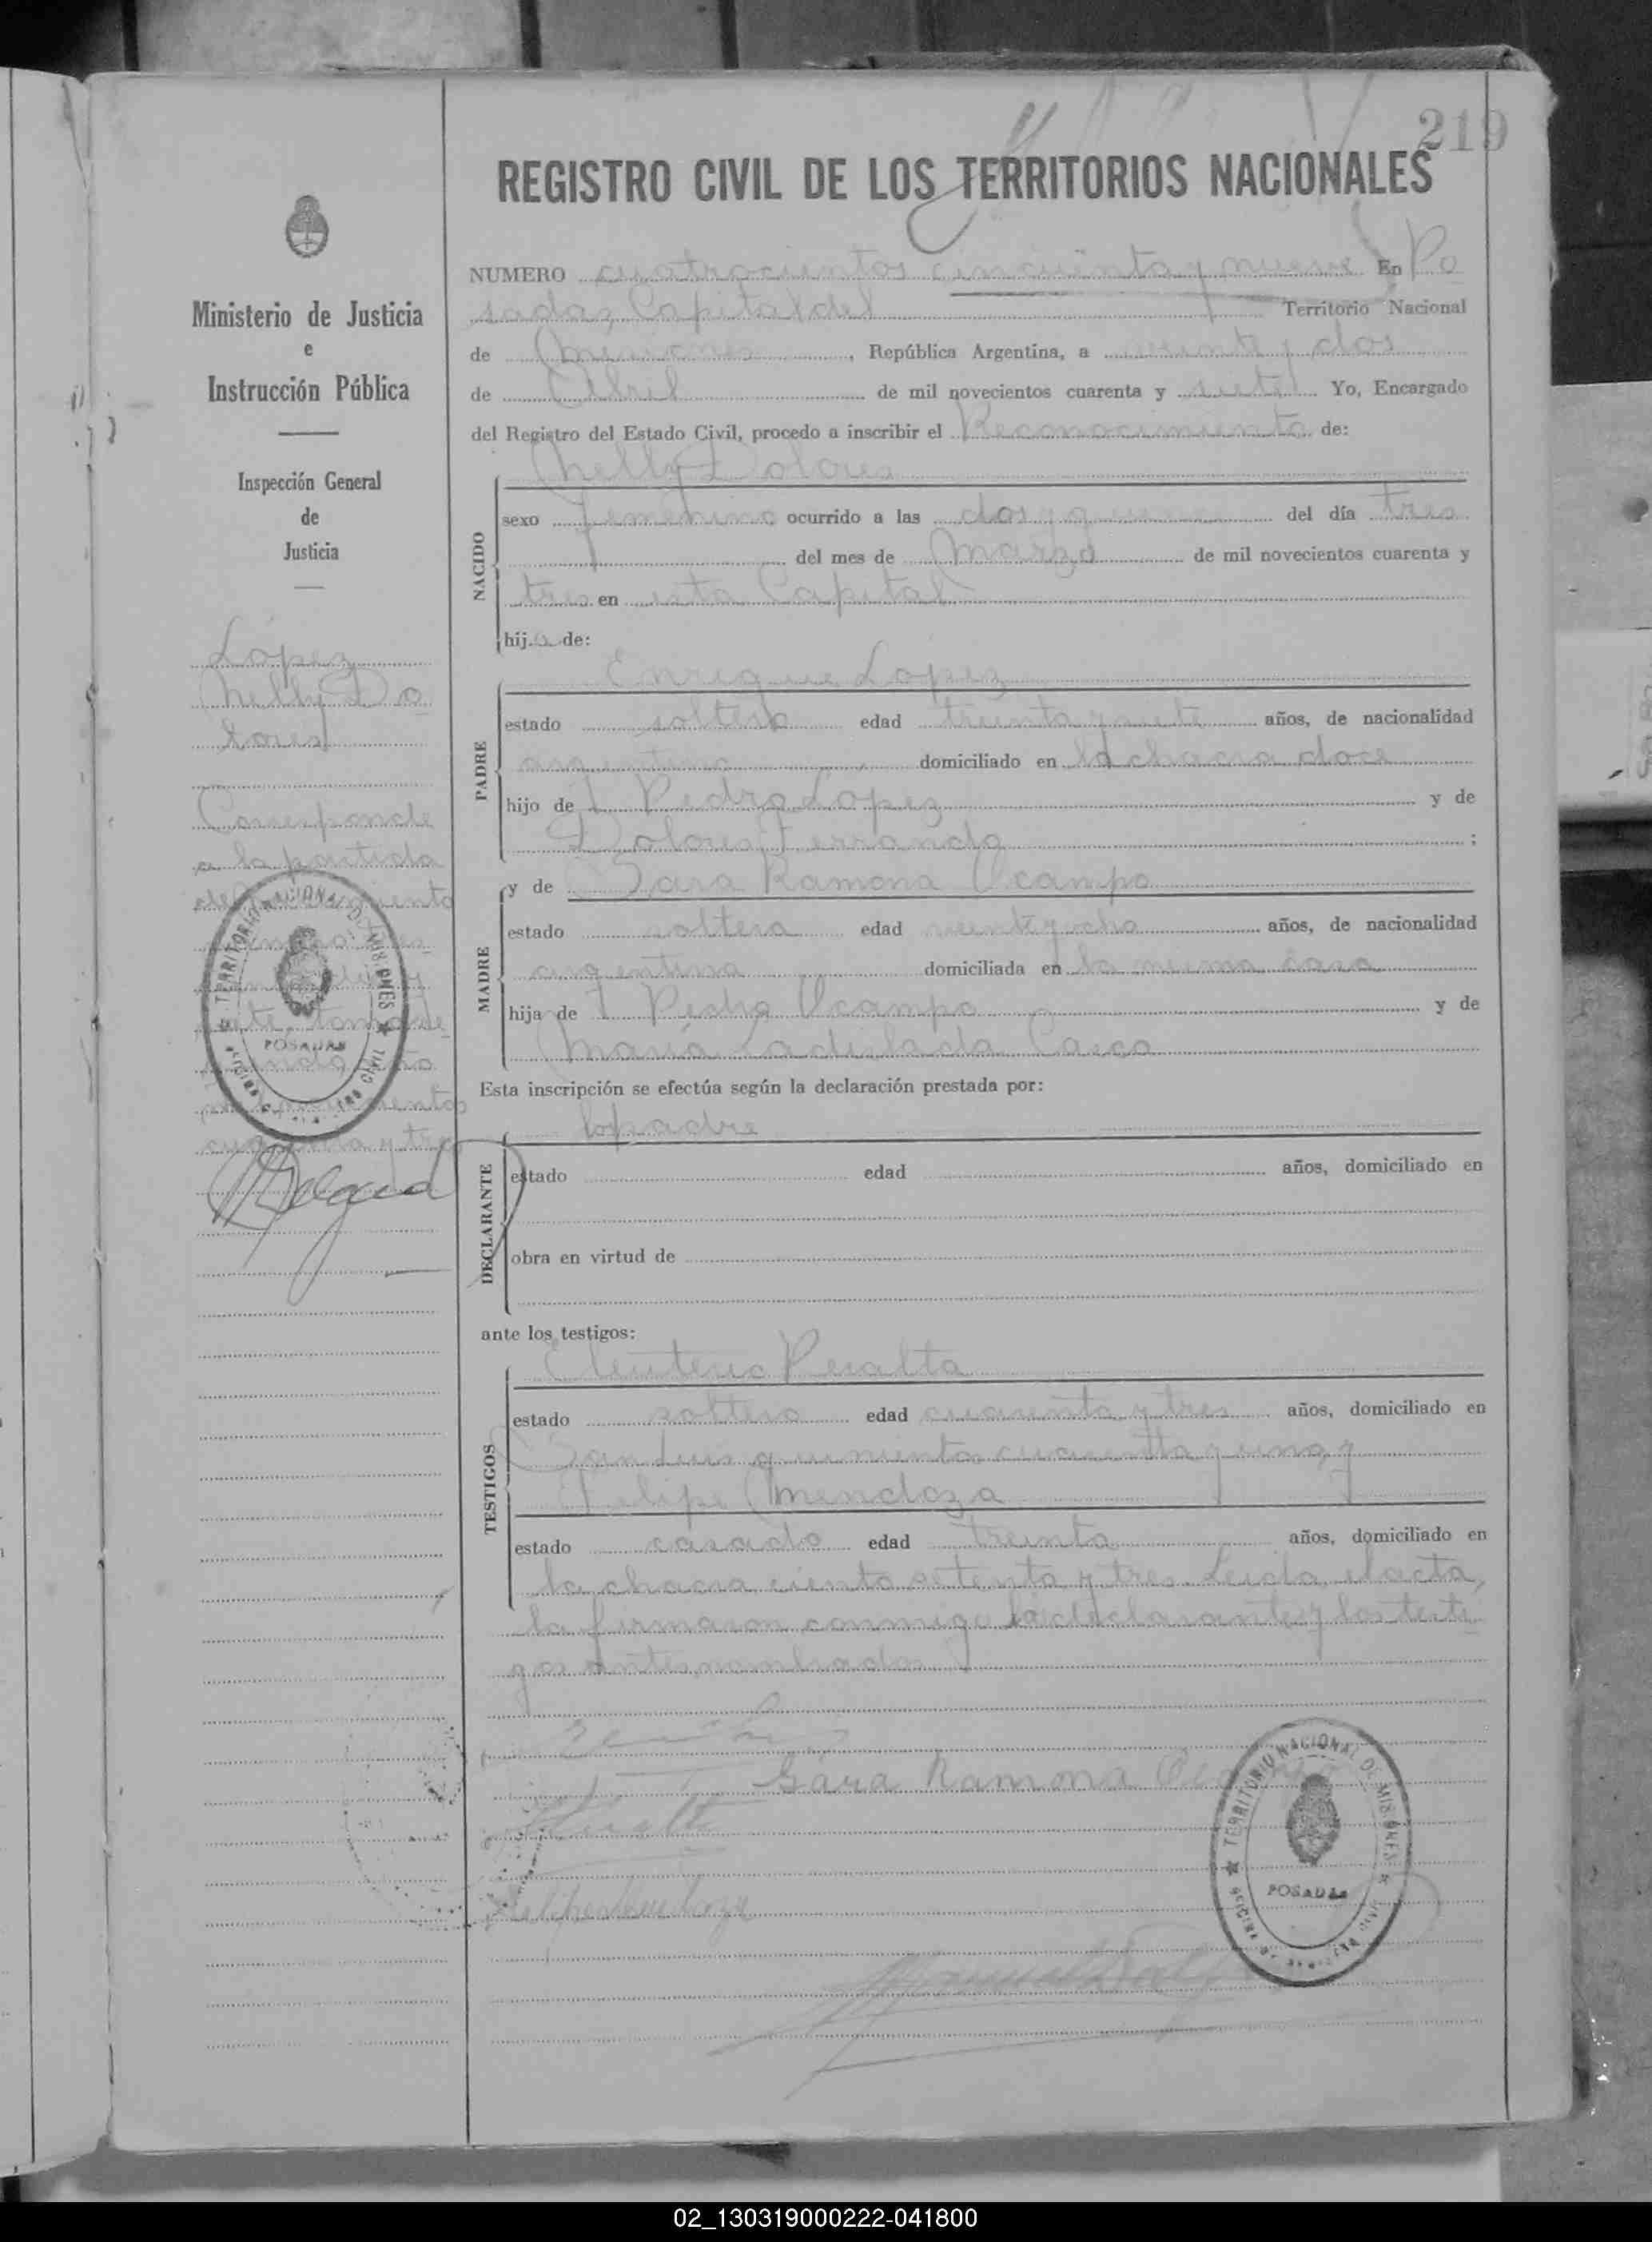 219
REGISTRO CIVIL DE LOS TERRITORIOS NACIONALES
Ministerio de Justicia
e
Instrucción Pública
Inspección General
de
Justicia
López
Nelly Do
lores
Corresponde
a la partida
de
cuarenta y tres
TERRITORIO NACIONAL DE MISIONES
POSADAS
NUMERO cuatrocientos cincuenta y nueve En Po
sadas, Capital del Territorio Nacional
de Misiones, República Argentina, a veinte y dos
de Abril de mil novecientos cuarenta y siete Yo, Encargado
del Registro del Estado Civil, procedo a inscribir el Reconocimiento de:
Nelly Dolores
NACIDO
sexo femenino ocurrido a las dos y quince del día tres
del mes de Marzo de mil novecientos cuarenta y
tres en esta Capital
hija de:
Enrique López
PADRE
estado soltero edad treinta y siete años, de nacionalidad
argentina domiciliado en la chacra doce
hijo de Pedro López y de
Dolores Ferranda ;
MADRE
y de Sara Ramona Ocampo
estado soltera edad veinte y ocho años, de nacionalidad
argentina domiciliada en la misma casa
hija de Pedro Ocampo y de
María Ladislada Casco
Esta inscripción se efectúa según la declaración prestada por:
lo padre
DECLARANTE
estado edad años, domiciliado en
obra en virtud de
ante los testigos:
TESTIGOS
Eleuterio Peralta
estado soltero edad cuarenta y tres años, domiciliado en
San Luis quinientos cuarenta y uno, y
Felipe Mendoza
estado casado edad treinta años, domiciliado en
la chacra ciento setenta y tres. Leida el acta,
la firmaron conmigo los declarantes y los testi
gos antes nombrados
Sara Ramona Ocampo
Felipe Mendoza
TERRITORIO NACIONAL DE MISIONES
POSADAS
02_130319000222-041800